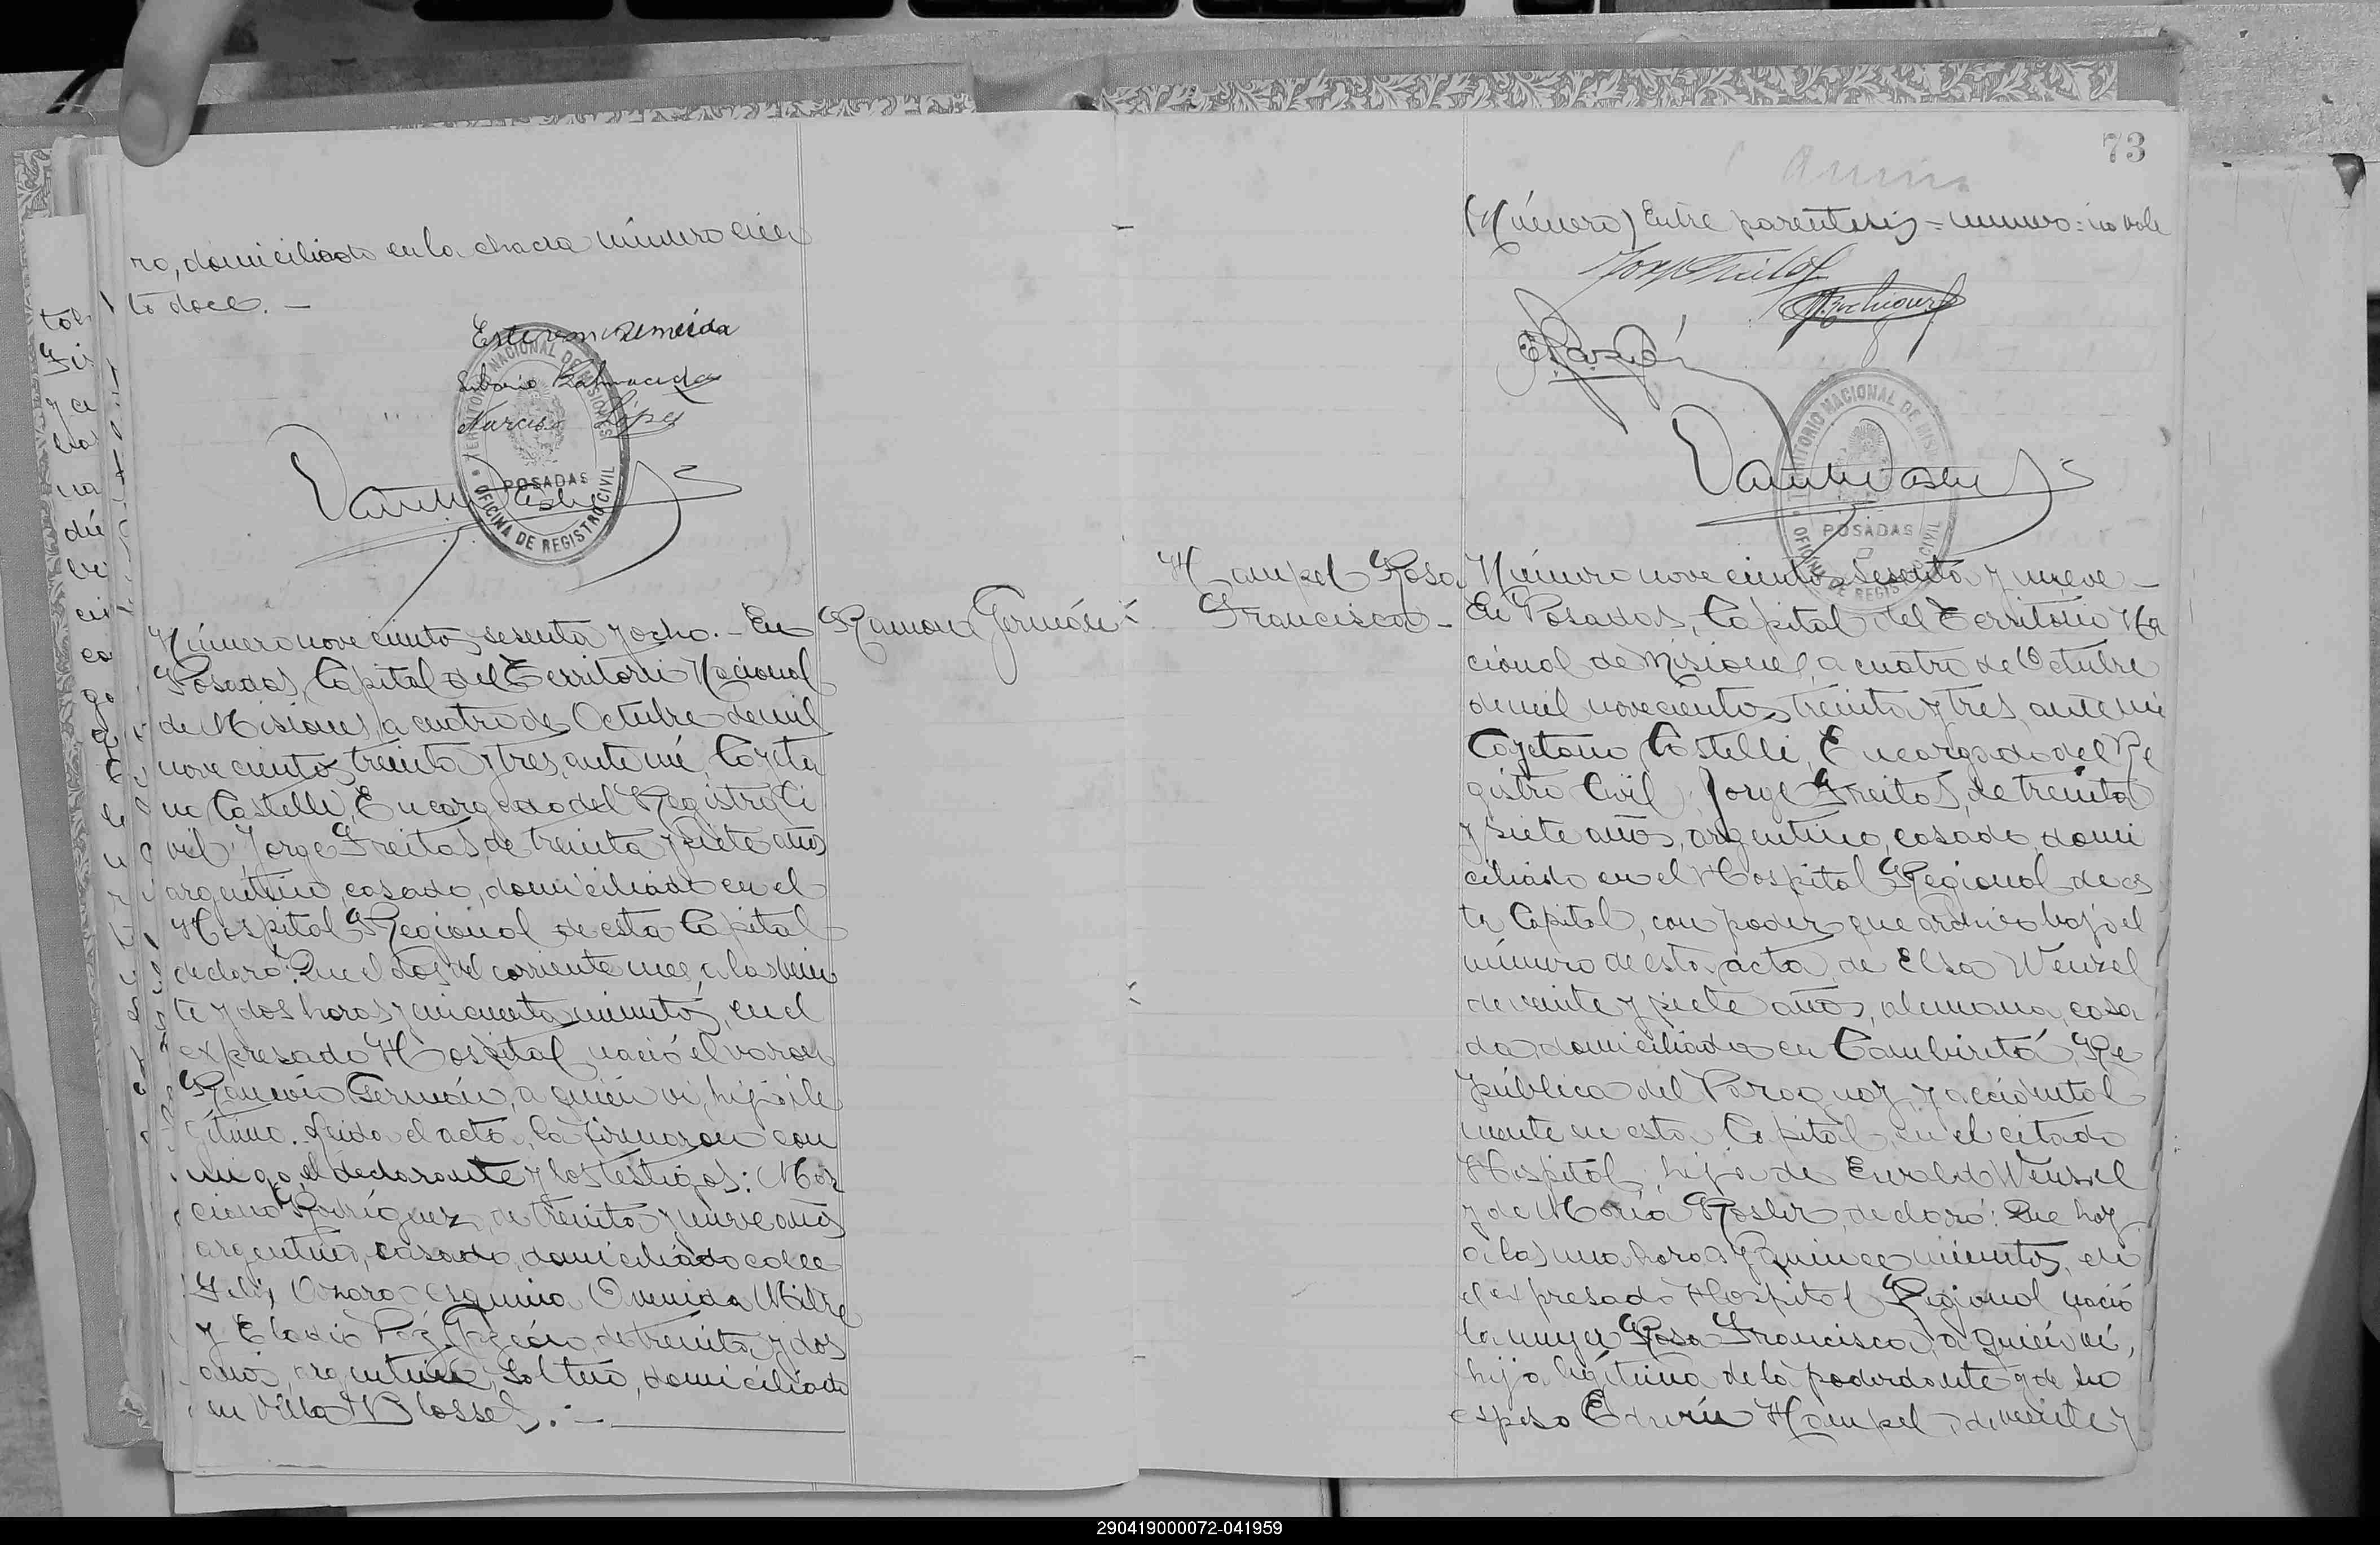 ro, domiciliado en la chacra número cien
to doce. —
Estevan Almeida
Liborio Balmaceda
Narciso López
TERRITORIO NACIONAL DE MISIONES
POSADAS
OFICINA DE REGISTRO CIVIL
Número novecientos sesenta y ocho. – En
Posadas, Capital del Territorio Nacional
de Misiones, a cuatro de Octubre de mil
novecientos treinta y tres, ante mí, Cayeta
no Castelli, Encargado del Registro Ci
vil, Jorge Freitas, de treinta y siete años
argentino, casado, domiciliado en el
Hospital Regional de esta Capital
declaró: Que el dos del corriente mes, a las vein
te y dos horas y cincuenta minutos, en el
expresado Hospital nació el varón
Ramón Germán, a quien vi, hijo ile
gítimo. Leida el acta, la firmaron con
migo, el declarante y los testigos: Mar
ciano Rodríguez, de treinta y nueve años
argentino, casado, domiciliado calle
Felix Azara esquina Avenida Mitre
y Eladio Paz, de treinta y dos
años, argentino, soltero, domiciliado
en Villa Blosset. —
Ramón Germán
73
(Número) Entre paréntesis = numero: no vale
TERRITORIO NACIONAL DE MISIONES
POSADAS
OFICINA DE REGISTRO CIVIL
Hampel Rosa
Francisca –
Número novecientos sesenta y nueve –
En Posadas, Capital del Territorio Na
cional de Misiones, a cuatro de Octubre
de mil novecientos treinta y tres, ante mí
Cayetano Castelli, Encargado del Re
gistro Civil, Jorge Freitas, de treinta
y siete años, argentino, casado, domi
ciliado en el Hospital Regional de es
ta Capital, con poder que archivo bajo el
número de esta acta, de Elsa Wenzel
de veinte y siete años, alemana, casa
da, domiciliada en Cambiretá, Re
pública del Paraguay y accidental
mente en esta Capital en el citado
Hospital, hija de Ewaldo Wenzel
y de María Rosler, declaró: Que hoy
a las una horas y quince minutos, en
el expresado Hospital Regional nació
la mujer Rosa Francisca, a quien vi,
hija legítima de la poderdante y de su
esposo Edwin Hampel, de veinte y
290419000072-041959